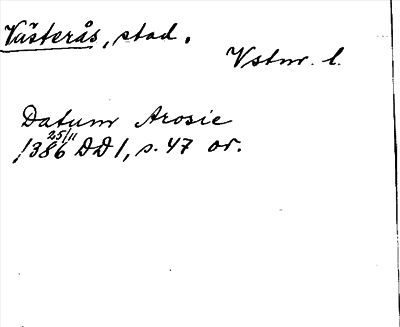 Västerås, stad.
Vstm. l.
Datum Arosie
1386 25/11 DD 1, s. 47 or.